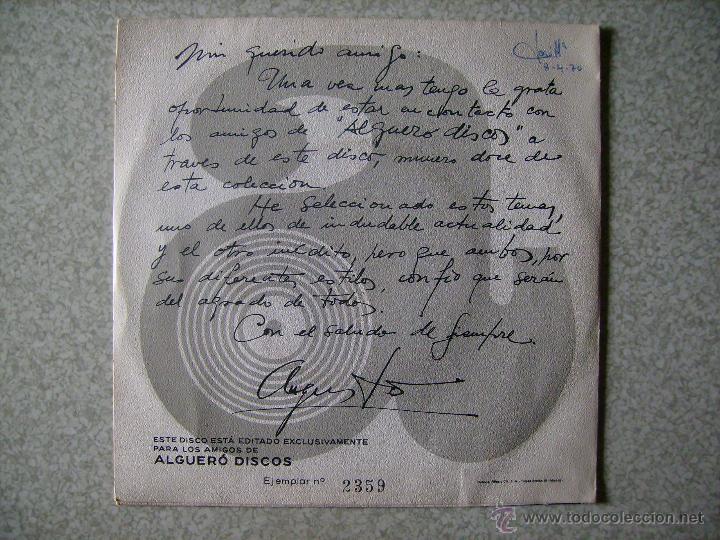 Mi querido amigo:
Una vez mas tengo la grata
oportunidad de estar en contacto con
los amigos de "Algueró discos" a
traves de este disco, número doce de
esta colección.
He seleccionado estos temas,
uno de ellos de indudable actualidad
y el otro inédito, pero que ambos, por
sus diferentes estilos, confío que serán
del agrado de todos.
Con el saludo de siempre.
Augusto
8-4-70
ESTE DISCO ESTÁ EDITADO EXCLUSIVAMENTE
PARA LOS AMIGOS DE
ALGUERÓ DISCOS
Ejemplar nº 2359
todocoleccion
© www.todocoleccion.net